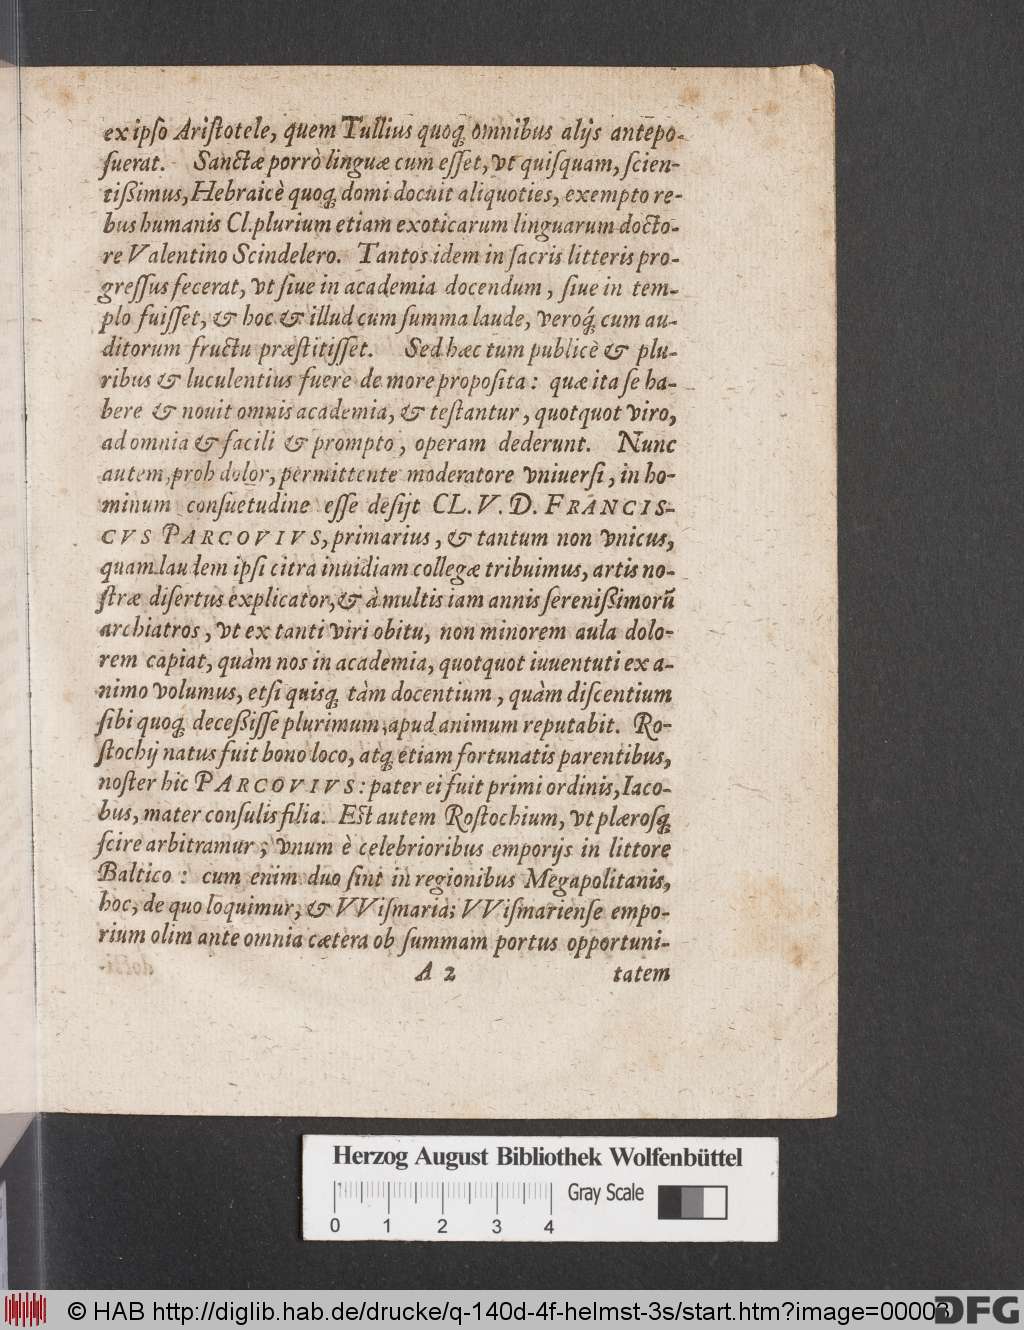 ex ipſo Ariſtotele, quem Tullius quoq́; omnibus alijs antepo-
ſuerat. Sanctæ porrò linguæ cum eſſet, vt quiſquam, ſcien-
tißimus, Hebraicè quoq́; domi docuit aliquoties, exempto re-
bus humanis Cl. plurium etiam exoticarum linguarum docto-
re Valentino Scindelero. Tantos idem in ſacris litteris pro-
greſſus fecerat, vt ſiue in academia docendum, ſiue in tem-
plo fuiſſet, & hoc & illud cum ſumma laude, veroq́; cum au-
ditorum fructu præſtitiſſet. Sed hæc tum publicè & plu-
ribus & luculentius fuere de more propoſita: quæ ita ſe ha-
bere & nouit omnis academia, & teſtantur, quotquot viro,
ad omnia & facili & prompto, operam dederunt. Nunc
autem, proh dolor, permittente moderatore vniuerſi, in ho-
minum conſuetudine eſſe deſijt CL. V. D. FRANCIS-
CVS PARCOVIVS, primarius, & tantum non vnicus,
quam laudem ipſi citra inuidiam collegæ tribuimus, artis no-
ſtræ diſertus explicator, & à multis iam annis ſerenißimorū
archiatros, vt ex tanti viri obitu, non minorem aula dolo-
rem capiat, quàm nos in academia, quotquot iuuentuti ex a-
nimo volumus, etſi quisq́; tàm docentium, quàm diſcentium
ſibi quoq́; deceßiſſe plurimum, apud animum reputabit. Ro-
ſtochij natus fuit bono loco, atq́; etiam fortunatis parentibus,
noſter hic PARCOVIVS: pater ei fuit primi ordinis, Iaco-
bus, mater conſulis filia. Est autem Roſtochium, vt plæroſq́;
ſcire arbitramur, vnum è celebrioribus emporijs in littore
Baltico: cum enim duo ſint in regionibus Megapolitanis,
hoc, de quo loquimur, & VViſmaria; VViſmarienſe empo-
rium olim ante omnia cætera ob ſummam portus opportuni-
A 2 tatem
Herzog August Bibliothek Wolfenbüttel
0 1 2 3 4 Gray Scale
© HAB http://diglib.hab.de/drucke/q-140d-4f-helmst-3s/start.htm?image=00003
DFG